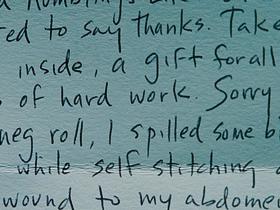 to say thanks. Take
inside, a gift for all
of hard work. Sorry
roll, I spilled some
while self stitching
wound to my